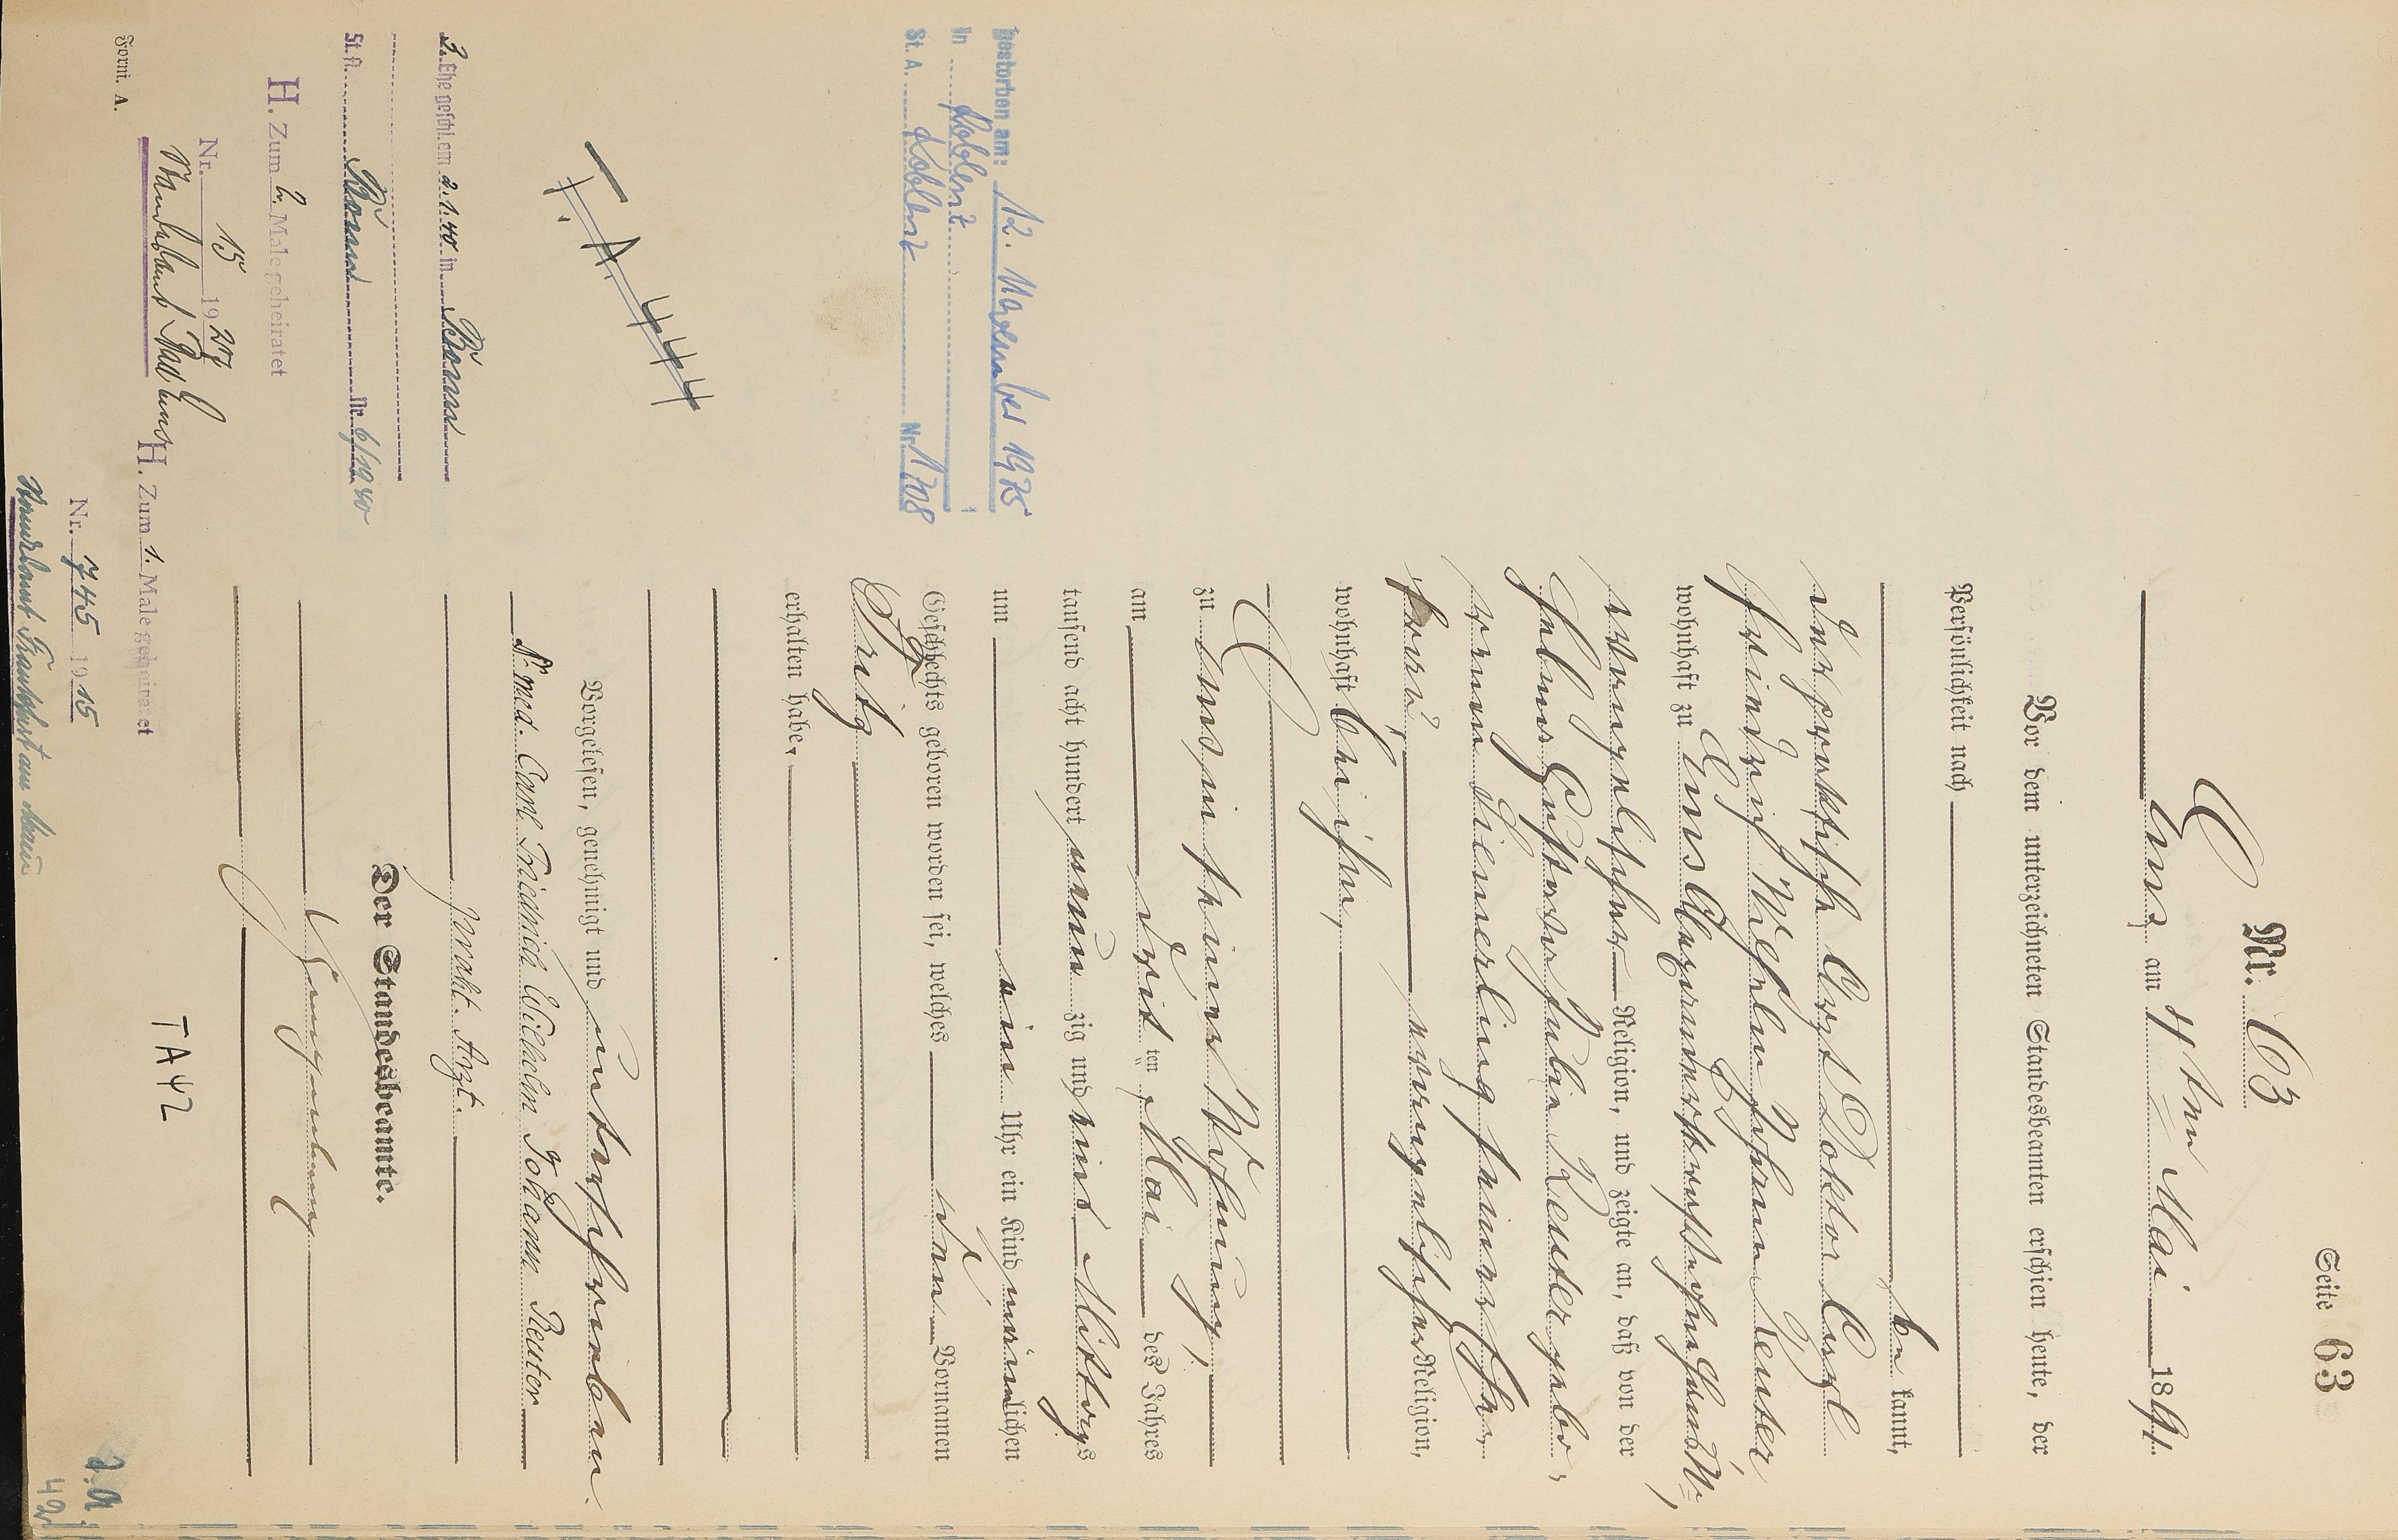 Seite 63
Nr. 63
Ems, am 4ten Mai 1891.
Vor dem unterzeichneten Standesbeamten erschien heute, der
Persönlichkeit nach
be kannt,
der praktische Arzt Doktor Carl
Friedrich Wilhelm Johann Reuter,
wohnhaft zu Ems
evangelischer Religion, und zeigte an, daß von der
Julie Reuter gebo-
renen Diemerling seiner Ehe-
frau,
evangelischer Religion,
wohnhaft bei ihm,
zu Ems in seiner Wohnung,
am drit ten Mai des Jahres
tausend acht hundert neun zig und eins Mittags
um ein Uhr ein Kind männlichen
Geschlechts geboren worden sei, welches den Vornamen
Fritz
erhalten habe.
Vorgelesen, genehmigt und unterschrieben
Dr. med. Carl Friedrich Wilhelm Johann Reuter
prakt. Arzt.
Der Standesbeamte.
Gestorben am: 12. November 1975
in Koblenz
St. A. Koblenz Nr. 1708
T. A 444
3. Ehe geschl. am 2.1.40. in Bonn
St. A. Bonn Nr. 6/1940
H. Zum 2. Male geheiratet
Nr. 15 1927
Standesamt Bad Ems
H. Zum 1. Male geheiratet
Nr. 745 1915
Standesamt Frankfurt am Main
Form. A.
TA42